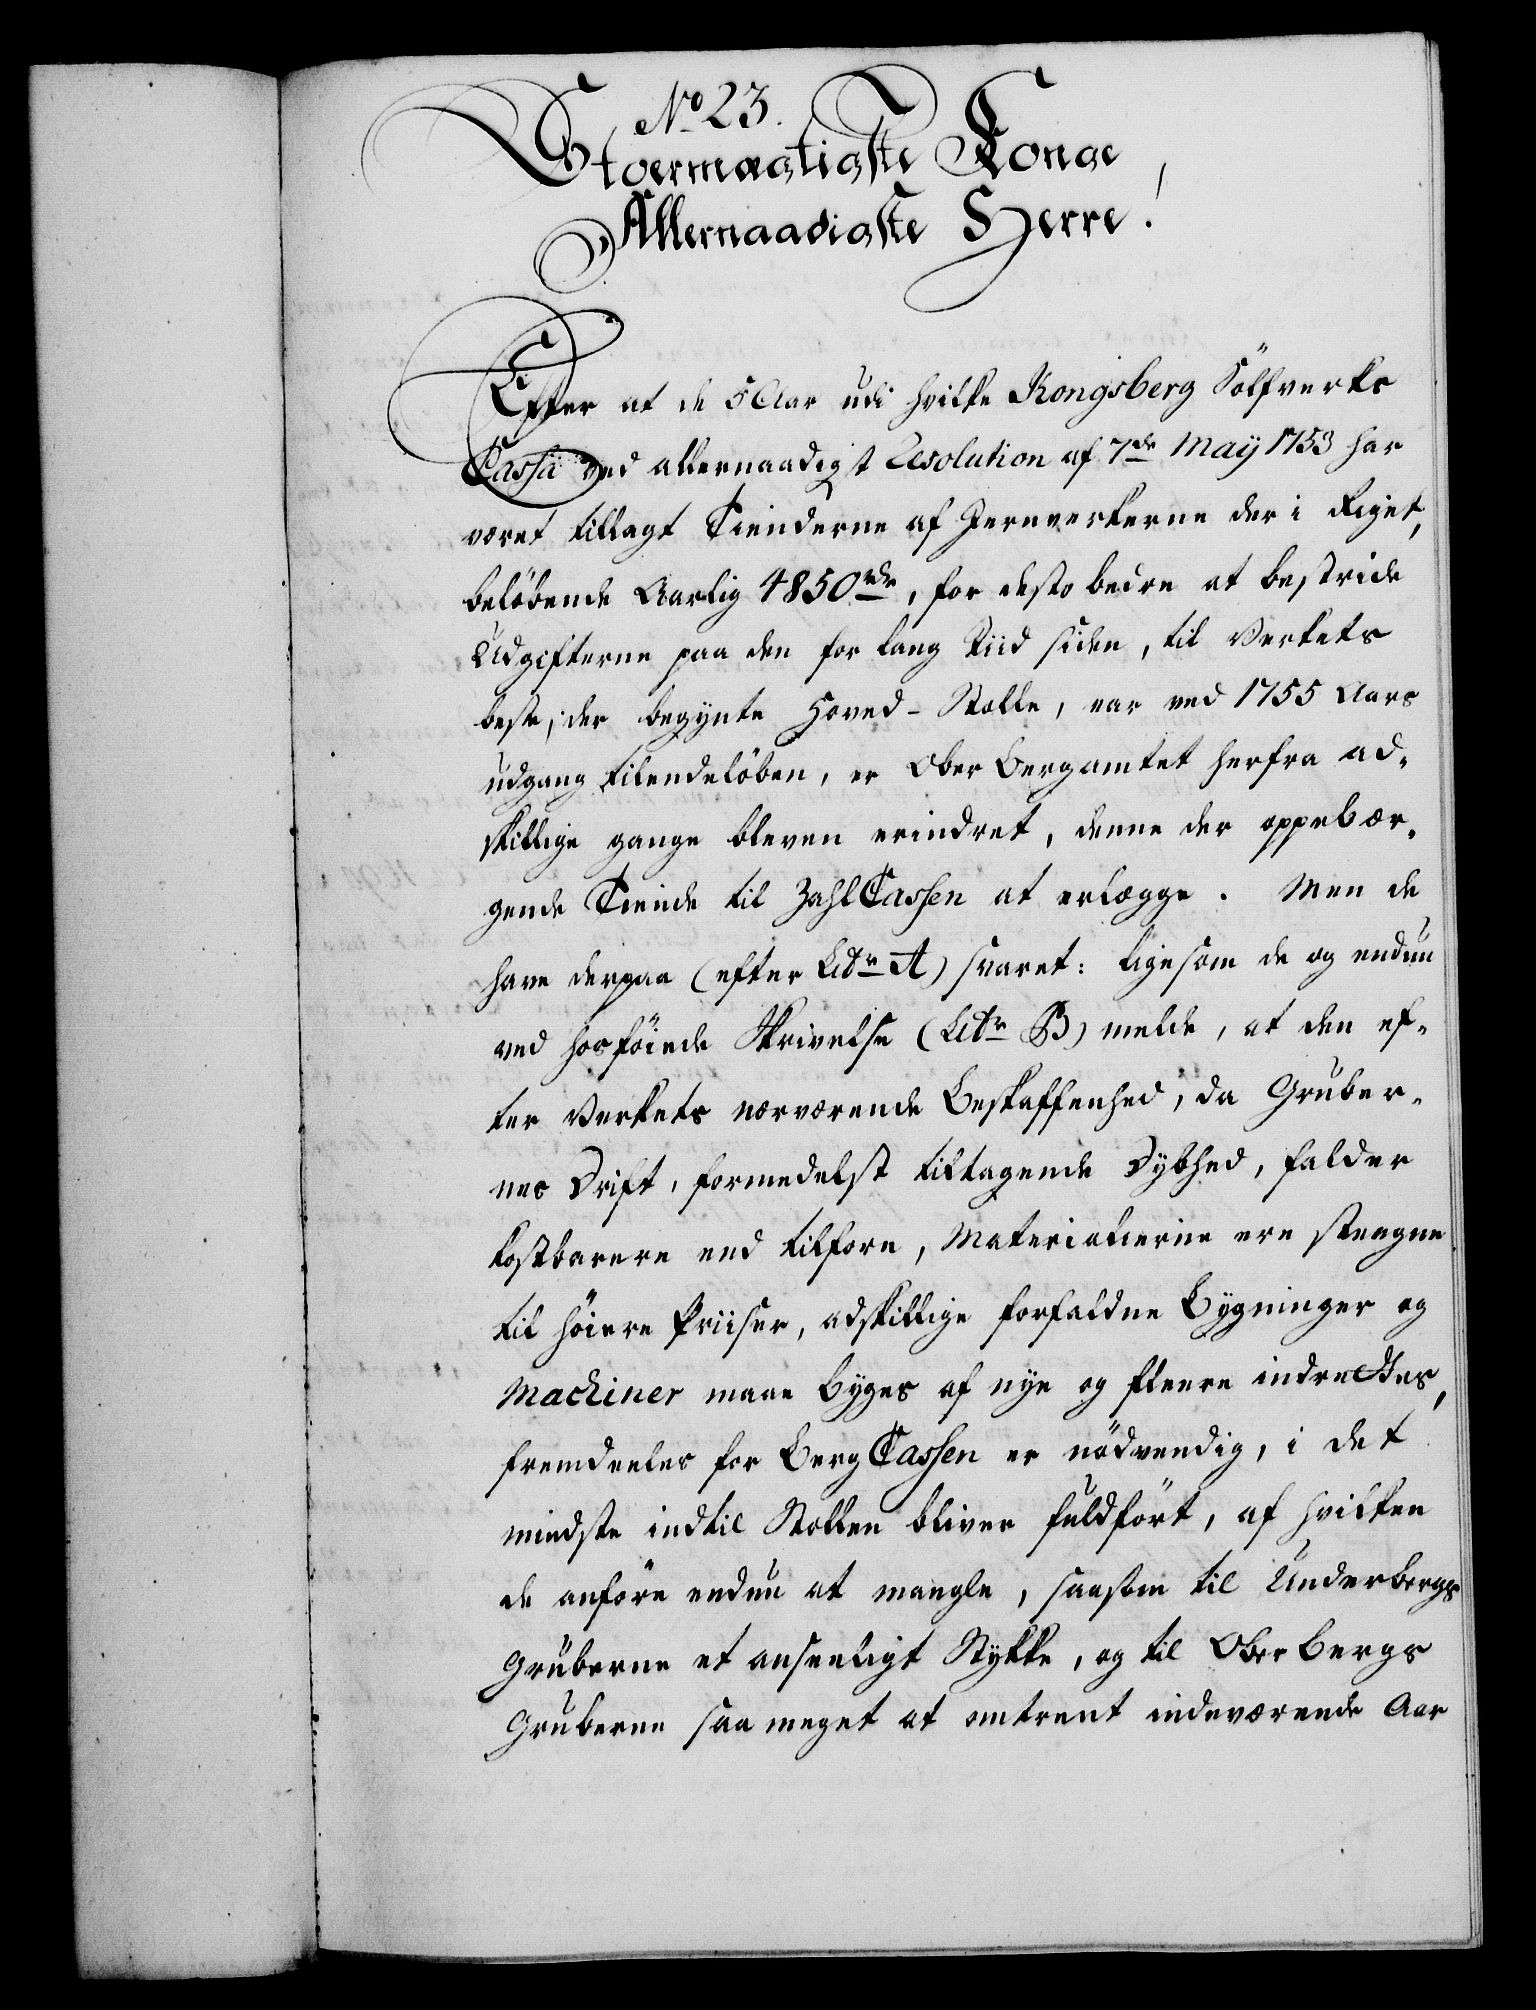 No 23.
Stoermægtigste Konge,
Allernaadigste Herre!
Efter at de 5 Aar udi hvilke Kongsberg Sölfverks
Cassa ved allernaadigst Resolution af 7de May 1753 har
været tillagt Tienderne af Jernverkerne der i Riget,
belöbende Aarlig 4850 rdr, for desto bedre at bestride
Udgifterne paa den for lang Tiid siden, til Verkets
beste, der begynte Hoved-Stolle, var ved 1755 Aars
udgang tilendelöben, er Ober Bergamtet herfra ad-
skillige gange bleven erindret, denne der oppebær-
gende Tiende til Zahl Cassen at erlægge. Men de
have derpaa (efter Litr A) svaret: ligesom de og endnu
ved hosföiede Skrivelse (Litr B) melde, at den ef-
ter Verkets nærværende Beskaffenhed, da Gruber-
nes Drift, formedelst tiltagende Dybhed, falder
kostbarere end tilforn, Materialierne ere stengne
til höiere Priiser, adskillige forfaldne Bygninger og
Machiner maae byges af nye og fleere indrettes,
fremdeeles for Berg Cassen er nödvendig, i det
mindste indtil Stollen bliver fuldfört, af hvilken
de anföre endnu at mangle, saasom til Underbergs
Gruberne et anseeligt Stykke, og til Oberbergs
Gruberne saa meget at omtrent indeværende Aar